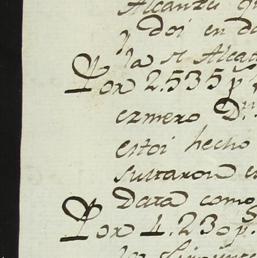 Alcanza
y doi en da
la R.l Alca
Por 2.535 p.s
ezmero D.n
estoi hecho
sultaron e
Data como
Por 4.230 p.